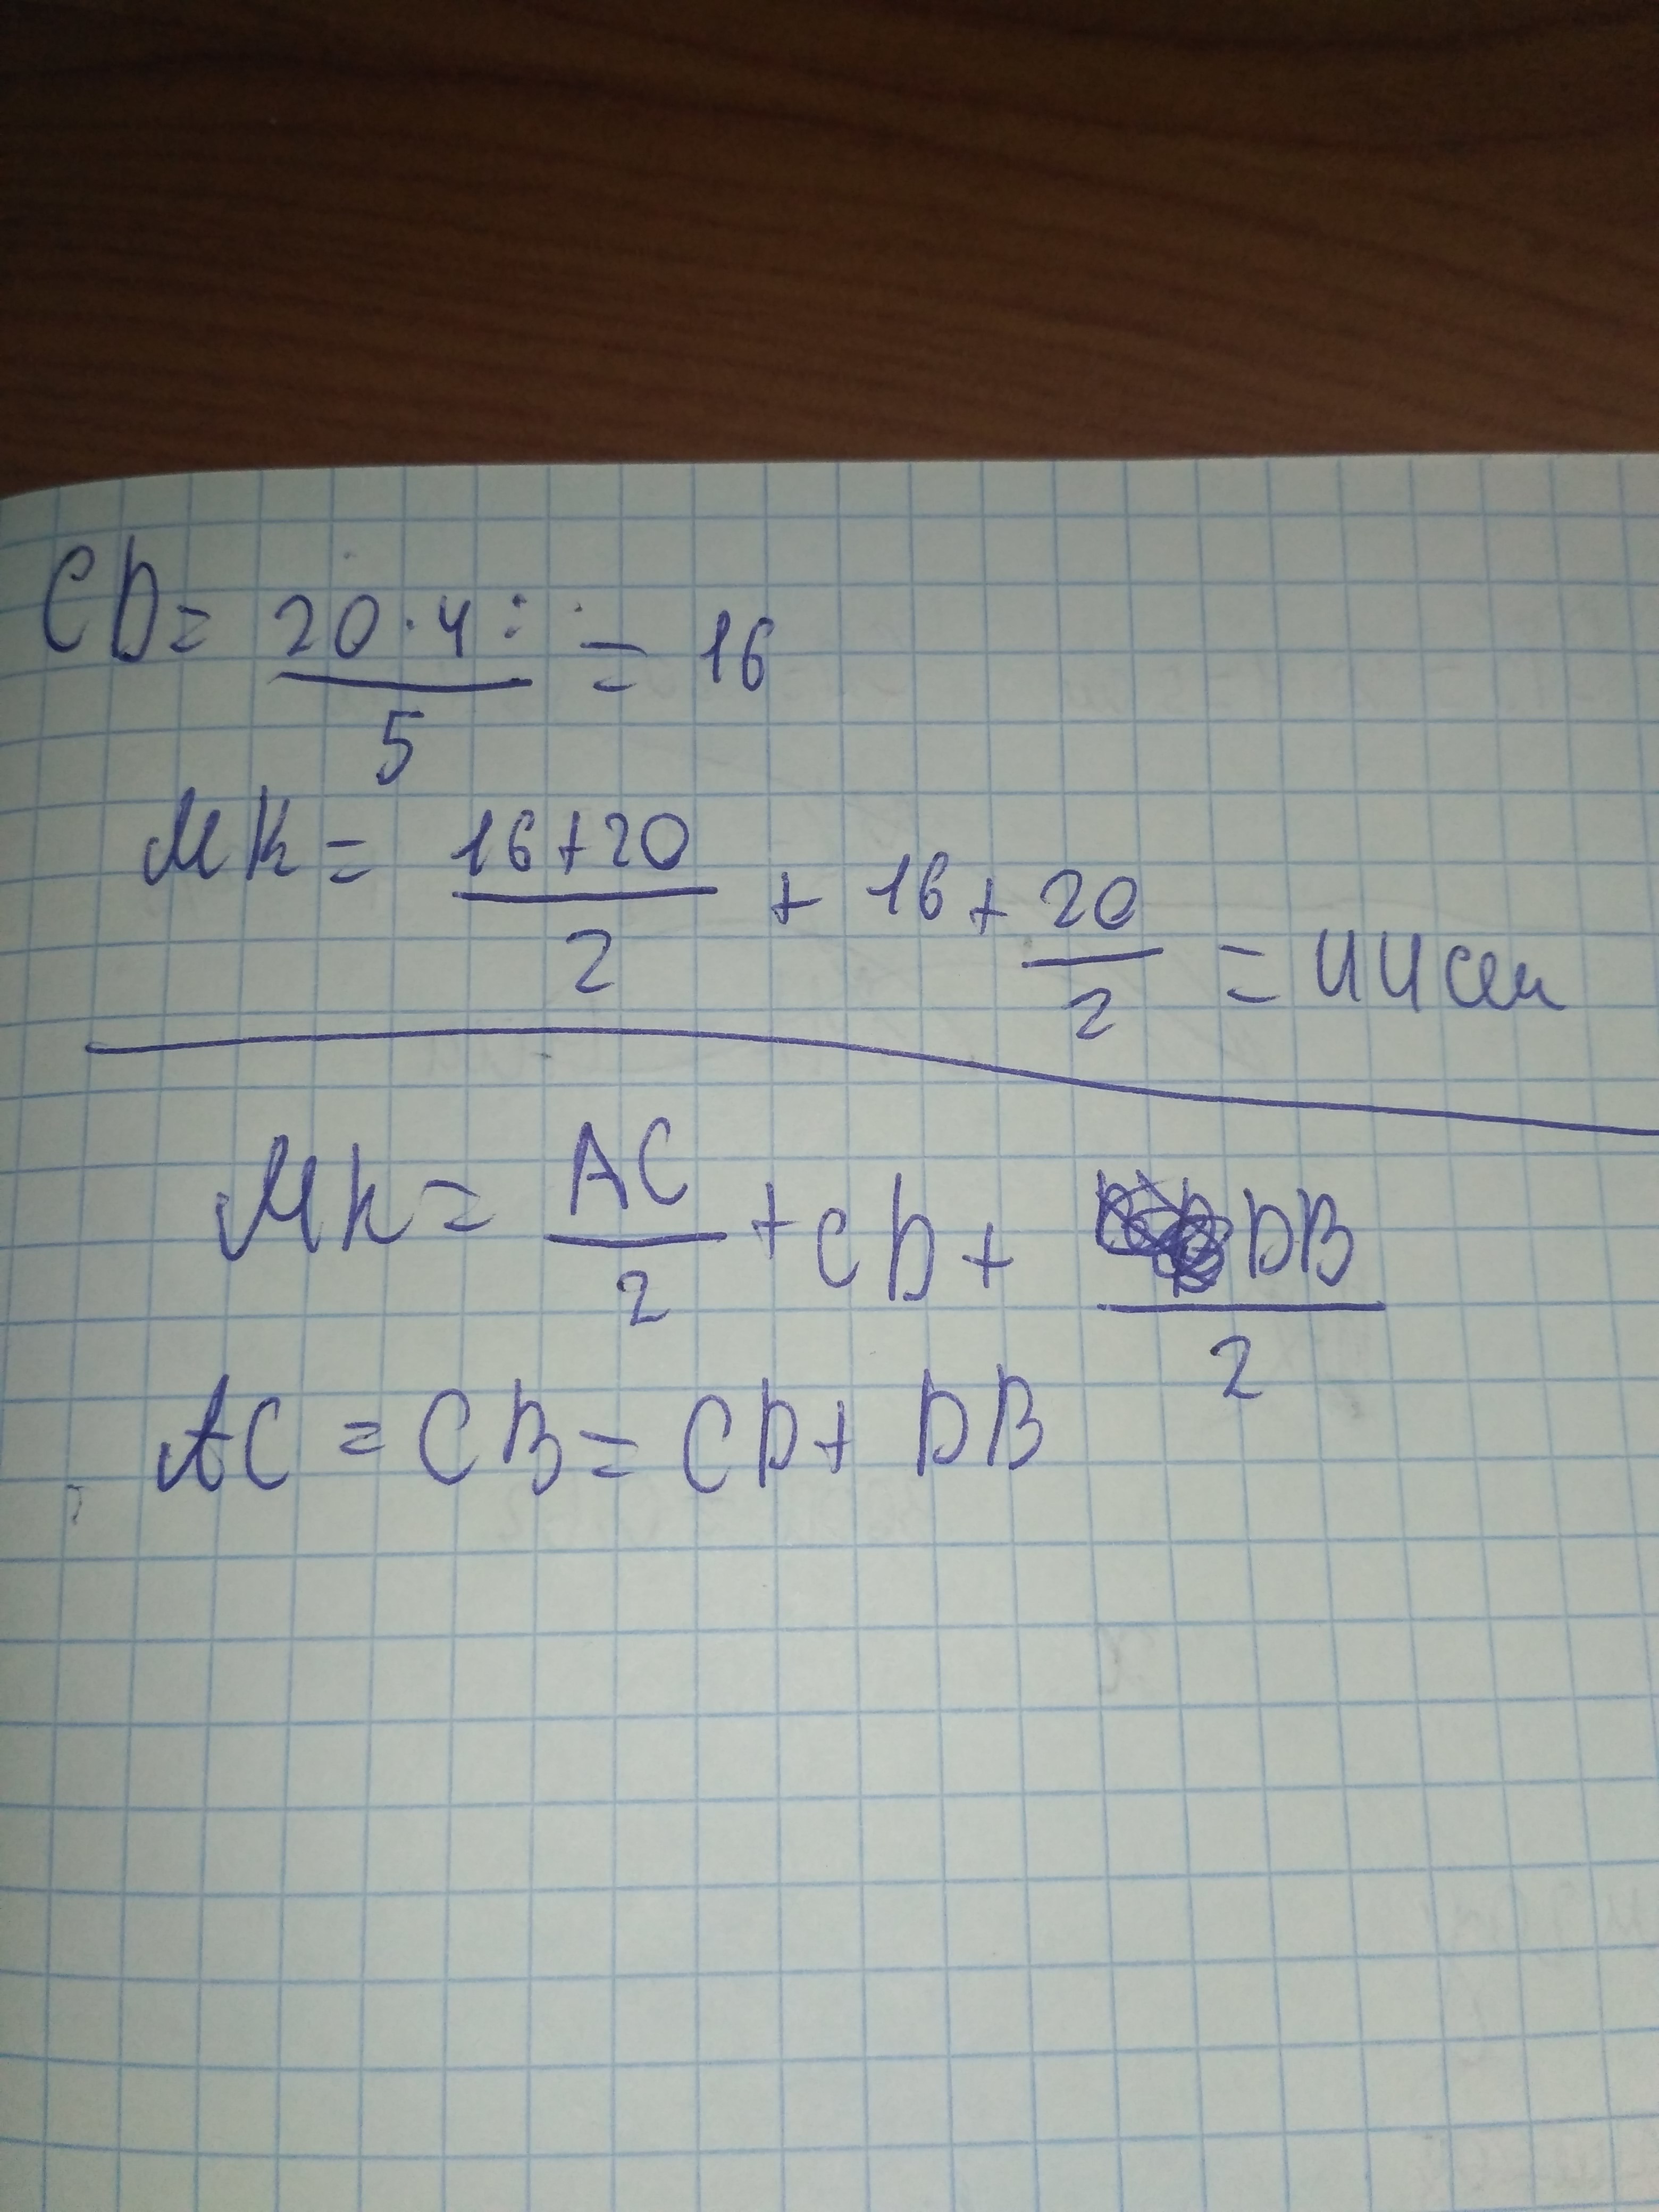 CD = 20·4: / 5 = 16
MK = 16+20 / 2 + 16 + 20 / 2 = 44см
MK = AC / 2 + CD + DB / 2
AC = CB = CD + DB